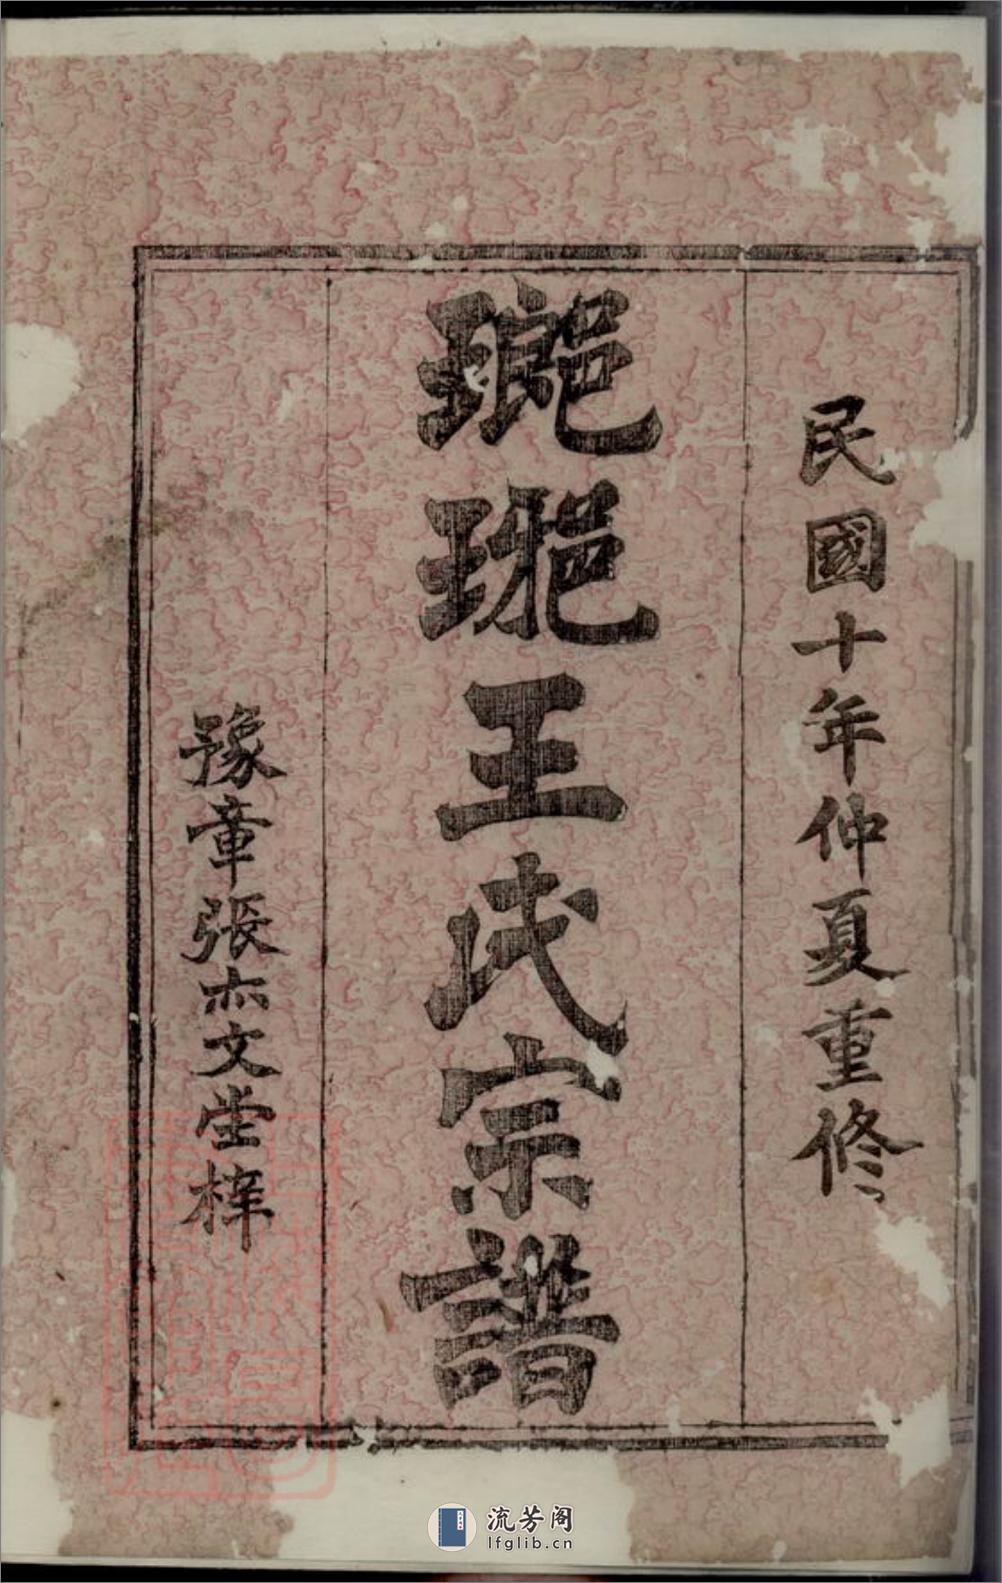 民國十年仲夏重修
瑯琊王氏宗譜
豫章張六文堂梓
流芳阁
lfglib.cn